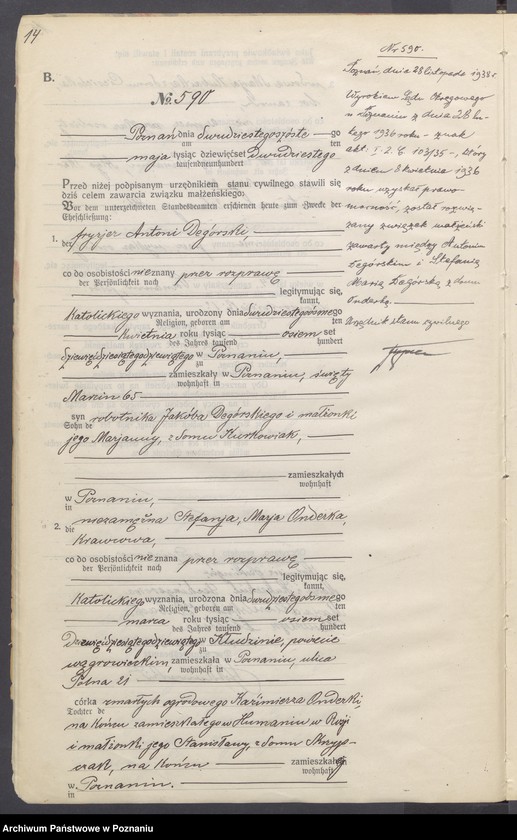 14
B.
№ 590
Poznań dnia dwudziestegoszóste — go
am ten
maja tysiąc dziewięćset Dwudziestego
tausendneunhundert
Przed niżej podpisanym urzędnikiem stanu cywilnego stawili się
dziś celem zawarcia związku małżeńskiego:
Vor dem unterzeichneten Standesbeamten erschienen heute zum Zwecke der
Eheschließung:
1. fryzjer Antoni Degórski,
der
co do osobistości nieznany przez rozprawę
der Persönlichkeit nach
legitymując się,
kannt,
Katolickiego wyznania, urodzony dnia dwudziestegoósmego
Religion, geboren am ten
kwietnia roku tysiąc — osiem set
des Jahres tausend hundert
Dziewięćdziesiątegodziewiątego w Poznaniu,
zu
zamieszkały w Poznaniu, święty
wohnhaft in
Marcin 65
syn robotnika Jakóba Degórskiego i małżonki
Sohn de
jego Marjanny, z domu Kurkowiak,
zamieszkałych
wohnhaft
w Poznaniu,
in
2. niezamężna Stefanja, Marja Onderka,
die
krawcowa,
co do osobistości nieznana przez rozprawę
der Persönlichkeit nach
legitymując się,
kannt,
Katolickiego wyznania, urodzona dnia dwudziestegoósmego
Religion, geboren am ten
marca roku tysiąc — osiem set
des Jahres tausend hundert
Dziewięćdziesiątegodziewiątego w Kludzinie, powiecie
zu
wągrowieckim, zamieszkała w Poznaniu, ulica
wohnhaft in
Polna 21
córka zmarłych ogrodowego Kazimierza Onderki,
Tochter de
na końcu zamieszkałego w Humaniu w Rosji
i małżonki jego Stanisławy, z domu
na końcu zamieszkałej
wohnhaft
w Poznaniu.
in
Nr 590.
Poznań, dnia 28 listopada 1938 r.
Wyrokiem Sądu Okręgowego
w Poznaniu z dnia 28 lu-
tego 1936 roku - znak
akt. I. 2. C 103/35 -, który
z dniem 8 kwietnia 1936
roku uzyskał prawo-
mocność, został rozwią-
zany związek małżeński
zawarty między Antonim
Degórskim i Stefanią
Marią Degórską z domu
Onderką.
Urzędnik stanu cywilnego
Archiwum Państwowe w Poznaniu
szukajwarchiwach.gov.pl